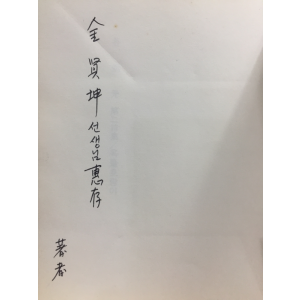 金賢坤선생님惠存
著者